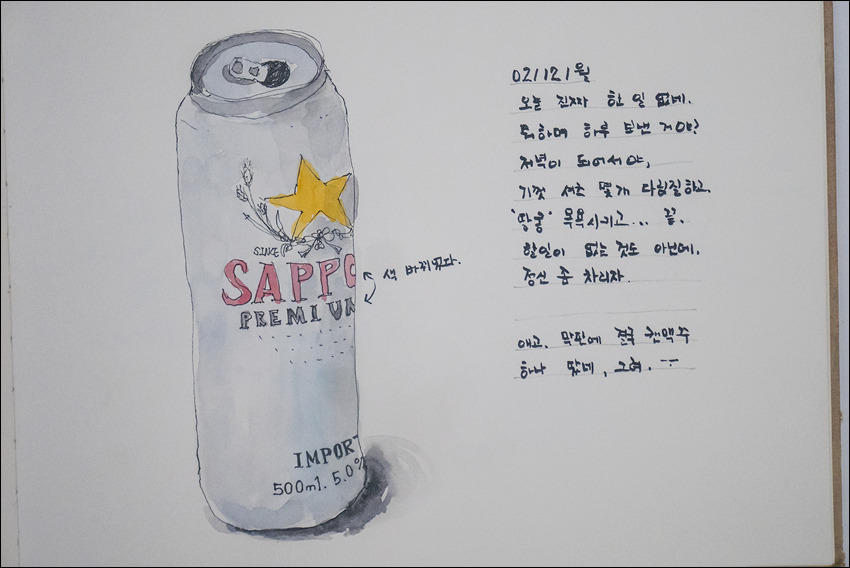 SINCE
SAPPO
PREMIUM
IMPORT
500ml. 5.0%
색 바뀌었다.
021121월
오늘 진짜 한 일 없네.
뭐하며 하루 보낸 거야?
저녁이 되어서야,
기껏 셔츠 몇개 다림질하고.
'땅콩' 목욕시키고... 끝.
할일이 없는 것도 아닌데.
정신 좀 차리자.
애고. 막판에 결국 캔맥주
하나 땄네,